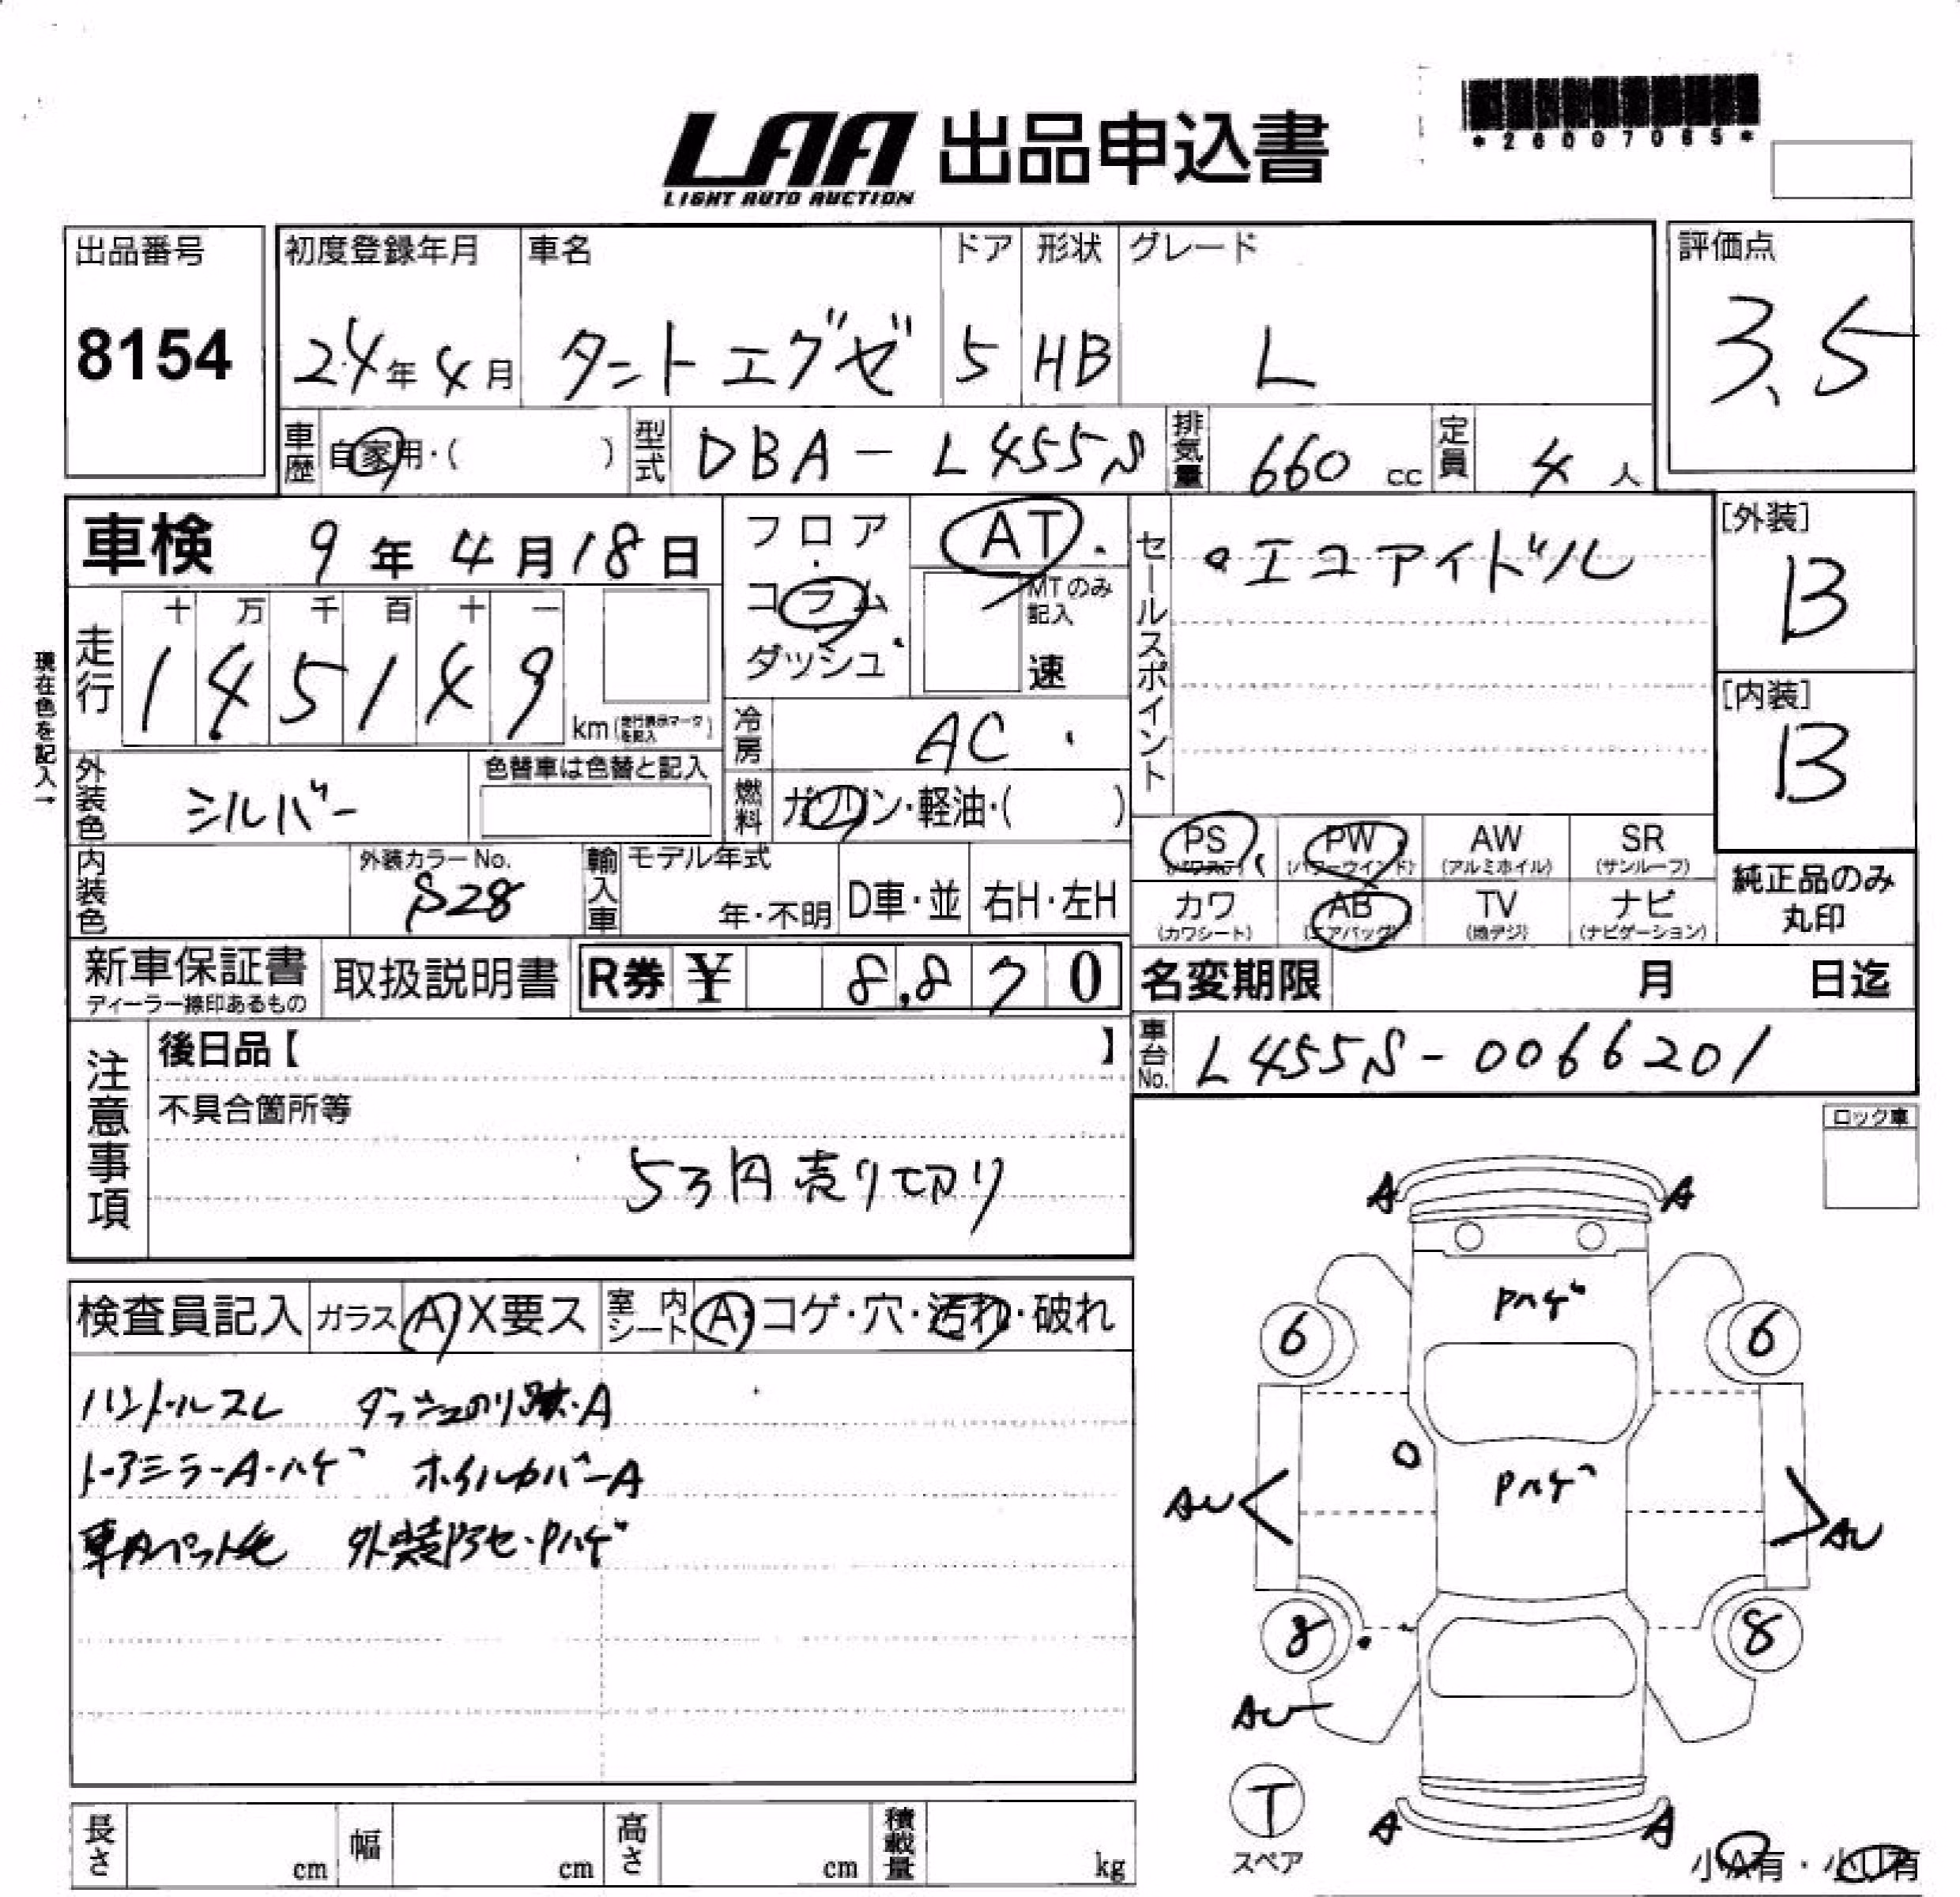 LAA 出品申込書
LIGHT AUTO AUCTION
*26007065*
出品番号 初度登録年月 車名 ドア 形状 グレード 評価点
8154 24年4月 タントエグゼ 5 HB L 3.5
車歴 自家用・( ) 型式 DBA-L455S 排気量 660 cc 定員 4 人
車検 9年4月18日
フロア・コラム・ダッシュ
AT
MTのみ記入
速
セールスポイント
・エコアイドル
[外装]
B
[内装]
B
現在色を記入→
走行 十 万 千 百 十 一
145149 km (走行表示マークを記入)
冷房 AC
外装色 シルバー 色替車は色替と記入
燃料 ガソリン・軽油・( )
内装色 外装カラーNo. S28
輸入車 モデル年式 年・不明 D車・並 右H・左H
PS (パワステ) PW (パワーウインド) AW (アルミホイル) SR (サンルーフ)
カワ (カワシート) AB (エアバッグ) TV (地デジ) ナビ (ナビゲーション)
純正品のみ丸印
新車保証書 ディーラー捺印あるもの 取扱説明書 R券 ¥ 8,870
名変期限 月 日迄
車台No. L455S-0066201
注意事項
後日品【 】
不具合箇所等
5万円売り切り
ロック車
検査員記入 ガラス A X要ス 室内シート A・コゲ・穴・汚れ・破れ
ハンドルスレ ダッシュのり跡・A
ドアミラーA・ハゲ ホイルカバーA
車内ペット毛 外装色アセ・Pハゲ
A A
Pハゲ
6 6
Pハゲ
AU AU
8 8
AU
T
スペア
A A
小A有・小U有
長さ cm 幅 cm 高さ cm 積載量 kg